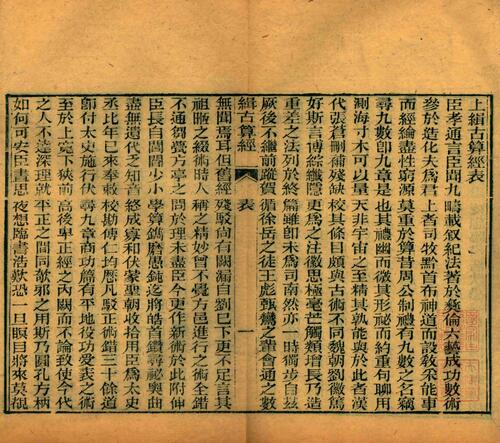 上緝古算經表
臣孝通言臣聞九疇載敘紀法著於彝倫六藝成功數術
參於造化夫為君上者司牧黔首布神道而設教采能事
而經綸盡性窮源莫重於算昔周公制禮有九數之名竊
尋九數即九章是也其禮幽而微其形祕而約重句聊用
測海寸木可以量天非宇宙之至精其孰能與於此者漢
代張蒼刪補殘缺校其條目頗與古術不同魏朝劉徽篤
好斯言博綜纖隱更為之注徽思極毫芒觸類增長乃造
重差之法列於終篇雖即未為司南然亦一時獨步自茲
厥後不繼前蹤賀循徐岳之徒王彪甄鸞之輩會通之數
緝古算經
表
一
無聞焉耳但舊經殘駁尚有闕漏自劉已下更不足言其
祖暅之綴術時人稱之精妙曾不覺方邑進行之術全錯
不通芻甍方亭之問於理未盡臣今更作新術於此附伸
臣長自閭閻少小學算鐫磨愚鈍迄將皓首鑽尋祕奧曲
盡無遺代之知音終成寡和伏蒙聖朝收拾用臣為太史
丞比年已來奉敕校勘傅仁均曆凡駁正術錯三十餘道
即付太史施行伏尋九章商功篇有平地役功受袤之術
至於上寬下狹前高後卑正經之內闕而不論致使今代
之人不達深理就平正之間同欹邪之用斯乃圓孔方枘
如何可安臣晝思夜想臨書浩歎恐一旦瞑目將來莫覩